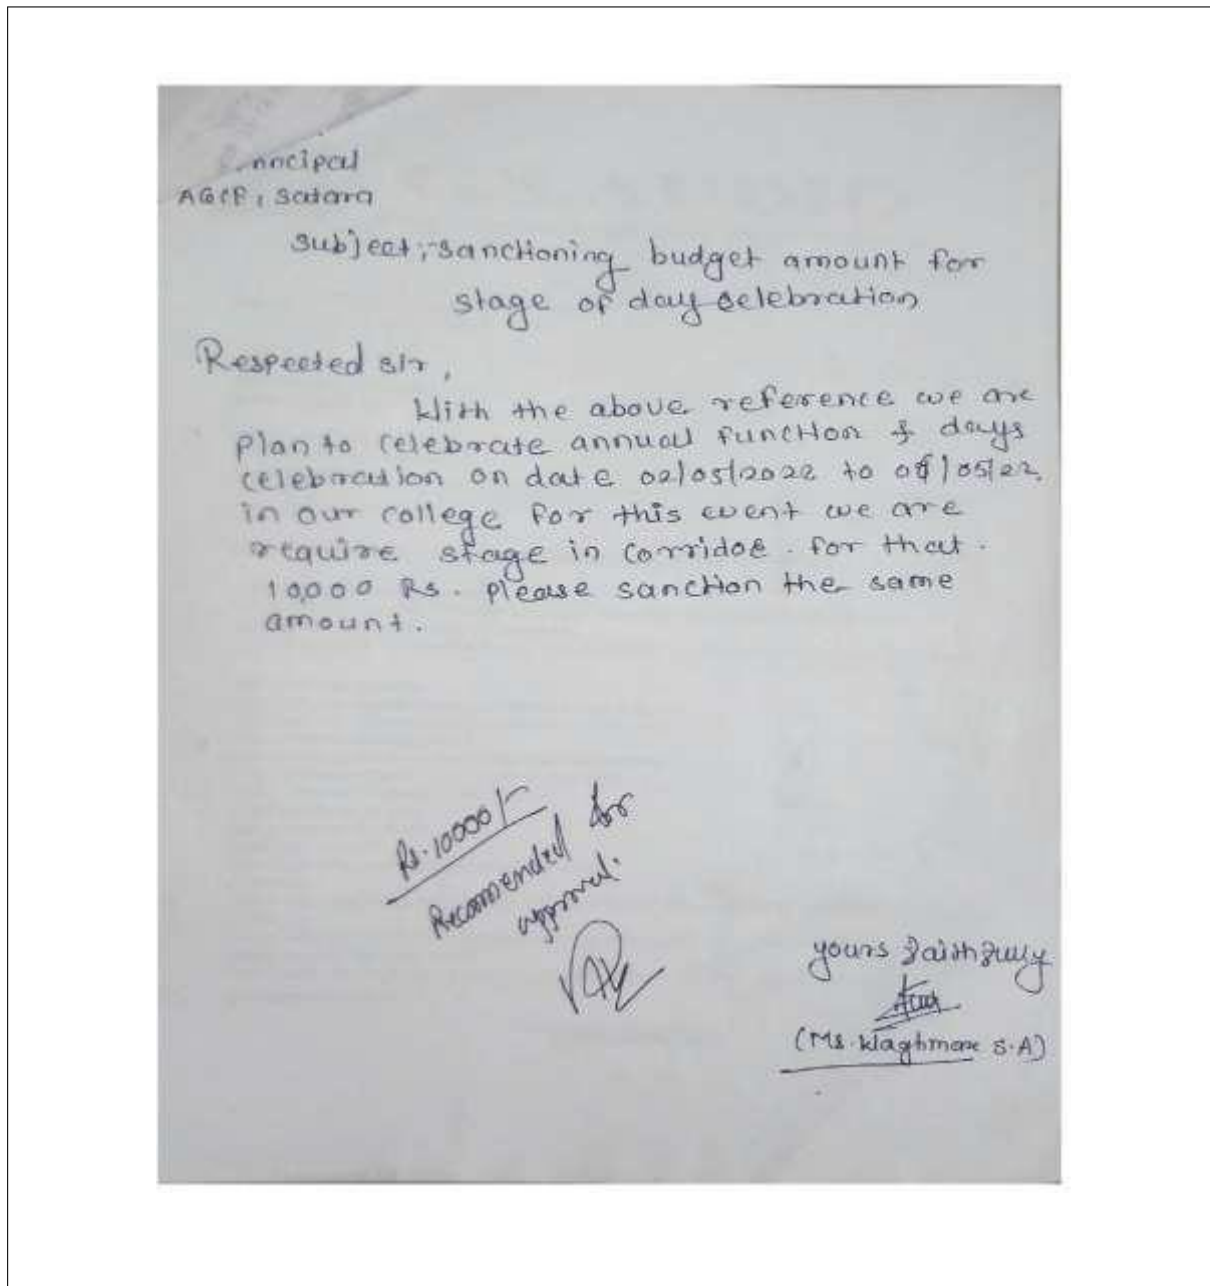 Principal
AGCP, Satara
Subject:- Sanctioning budget amount for
stage of day celebration
Respected sir,
With the above reference we are
plan to celebrate annual function & days
celebration on date 02/05/2022 to /05/22
in our college for this event we are
require stage in corridoe. for that.
10,000 Rs. please sanction the same
amount.
Rs. 10000/-
Recommended for
approval.
yours faithfully
(Ms. Waghmare S.A)